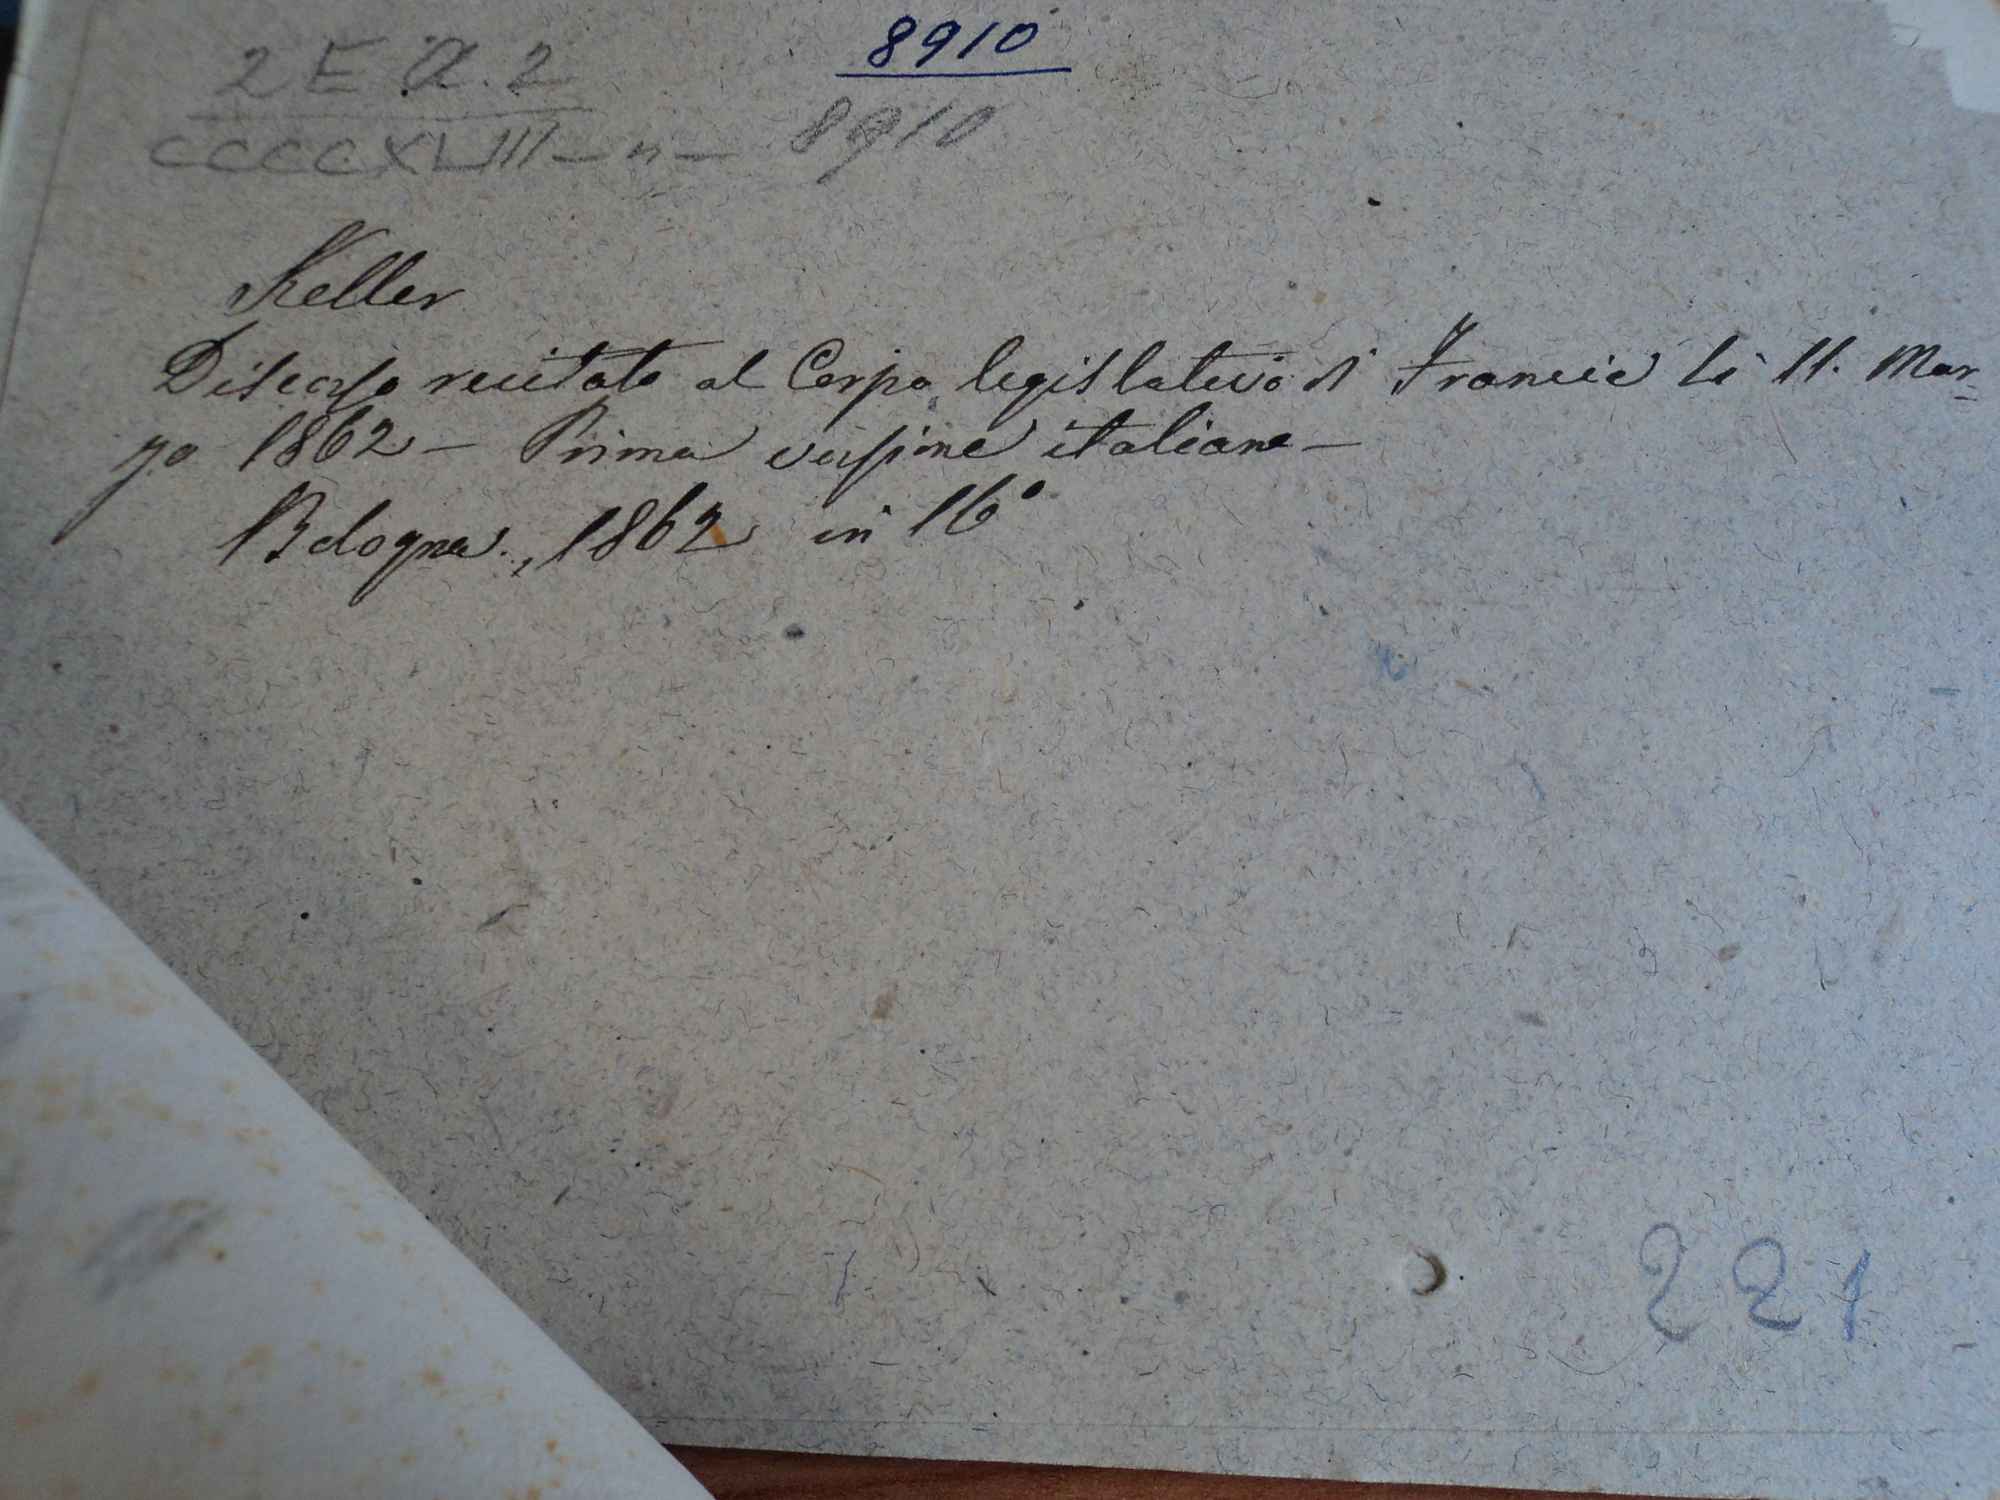 8910
2 E a. 2
CCCCXLVIII – n – 8910
Keller
Discorso recitato al Corpo legislativo di Francia li 11. Mar-
zo 1862 – Prima versione italiana –
Bologna, 1862 in 16°
221